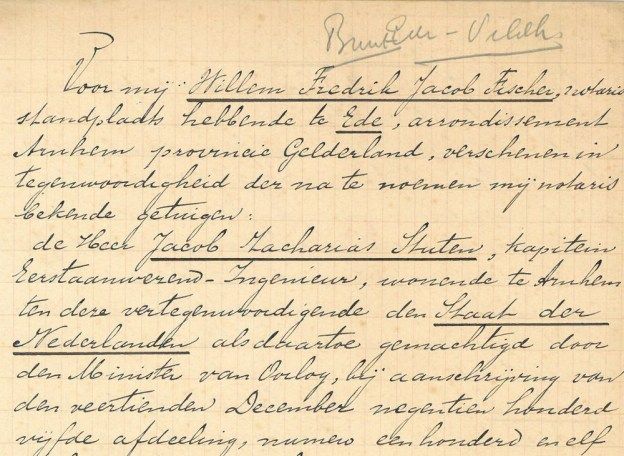 Voor mij Willem Fredrik Jacob Fischer, notaris
standplaats hebbende te Ede, arrondissement
Arnhem provincie Gelderland, verschenen in
tegenwoordigheid der na te noemen mij notaris
bekende getuigen:
de Heer Jacob Zacharias Stuten, kapitein
Eerstaanwezend-Ingenieur, wonende te Arnhem
ten deze vertegenwoordigende den Staat der
Nederlanden als daartoe gemachtigd door
den Minister van Oorlog, bij aanschrijving van
den veertienden December negentien honderd
vijfde afdeeling, numero een honderd en elf